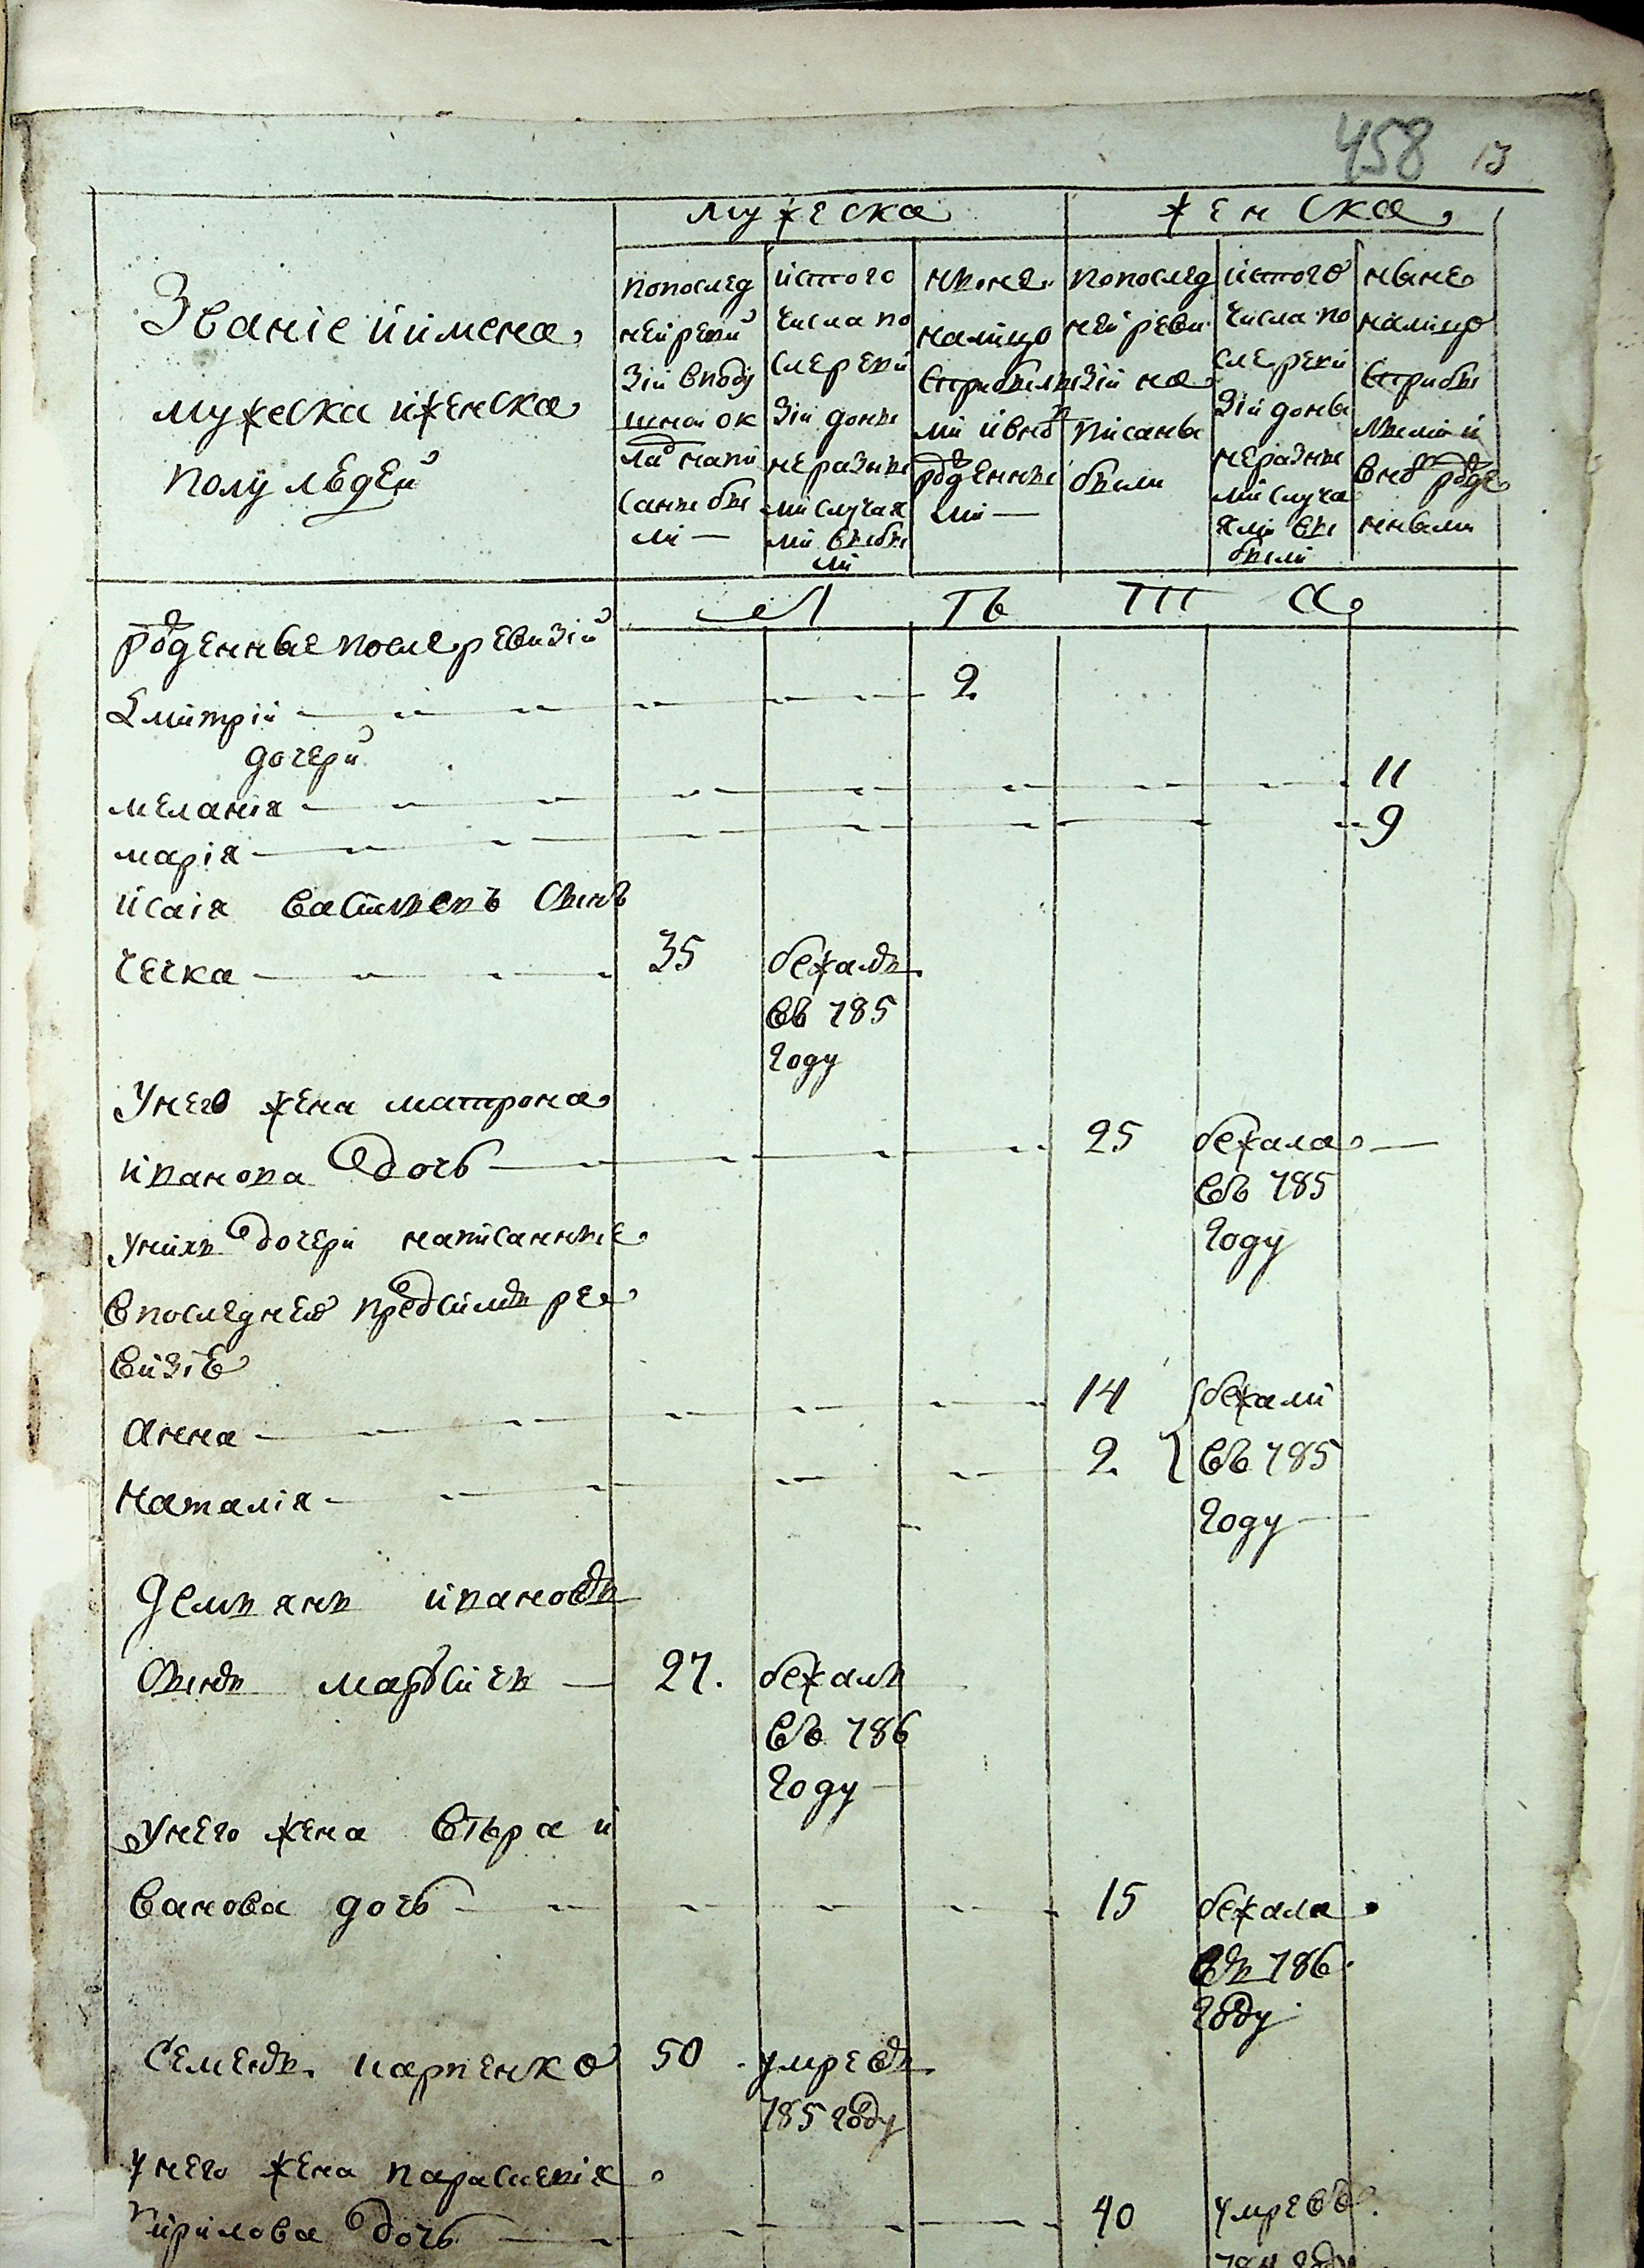 458 13
мужеска
женска
Званіе и имена
мужеска и женска
полу людей
по послед
ней реви
зіи в поду
шной ок
лад напи
саны бы
ли —
из того
числа по
сле реви
зіи до ны
не разны
ми случая
ми выбы
ли
ныне
на лицо
с прибылы
ми и внов
рожденны
ми —
по послед
ней реви
зіи на
писаны
были
из того
числа по
сле реви
зіи до ны
не разны
ми случа
ями вы
были
ныне
на лицо
с прибы
лыми и
внов рожде
нными
Л Ѣ Т А
рожденные после ревизіи
Дмитрій 2
дочери
меланія 11
марія 9
исаія васильевъ сынъ
чечка 35 бежалъ
въ 785
году
у него жена матрона
иванова дочь 25 бежала
въ 785
году
у нихъ дочери написанные
в последней пред симъ ре
визіе
анна 14 бежали
наталія 2 въ 785
году
демьянъ ивановъ
сынъ 27. бежалъ
въ 786
году
у него жена вѣра и
ванова дочь 15 бежала
въ 786
году
семенъ карпенко 50 умре въ
785 году
у него жена параскевія
кирилова дочь 40 умре въ
году